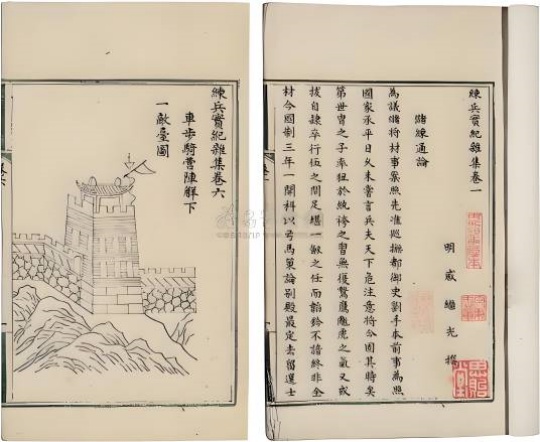 練兵實紀雜集卷六
車步騎營陣解下
一敵臺圖
練兵實紀雜集卷一
明 戚繼光 撰
儲練通論
為議儲將材事案照先准巡撫都御史劉手本前事為照
國家承平日久未嘗言兵夫天下危注意將今國其時矣
第世冑之子率狃於紈袴之習無復鷙鷹虓虎之氣又或
拔自隸卒行伍之間足堪一劍之任而韜鈐不諳終非全
材今國制三年一開科以弓馬策論別殿最定去留選士